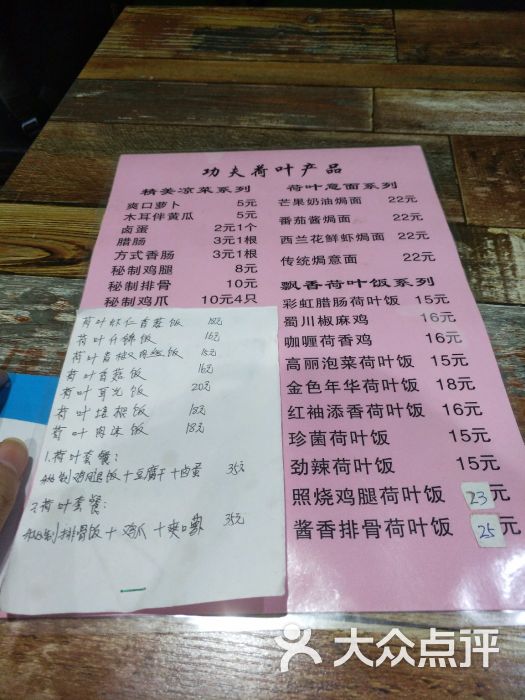 功夫荷叶产品
精美凉菜系列
爽口萝卜 5元
木耳伴黄瓜 5元
卤蛋 2元1个
腊肠 3元1根
方式香肠 3元1根
秘制鸡腿 8元
秘制排骨 10元
秘制鸡爪 10元4只
荷叶虾仁香菇饭 18元
荷叶什锦饭 16元
荷叶青椒肉丝饭 15元
荷叶香菇饭 16元
荷叶 饭 20元
荷叶培根饭 18元
荷叶肉沫饭 18元
1.荷叶套餐:
秘制鸡腿饭+豆腐干+卤蛋 35元
2.荷叶套餐:
秘制排骨饭+鸡爪+爽口 35元
荷叶意面系列
芒果奶油焗面 22元
番茄酱焗面 22元
西兰花鲜虾焗面 22元
传统焗意面 22元
飘香荷叶饭系列
彩虹腊肠荷叶饭 15元
蜀川椒麻鸡 16元
咖喱荷香鸡 16元
高丽泡菜荷叶饭 15元
金色年华荷叶饭 18元
红袖添香荷叶饭 16元
珍菌荷叶饭 15元
劲辣荷叶饭 15元
照烧鸡腿荷叶饭 23元
酱香排骨荷叶饭 25元
大众点评